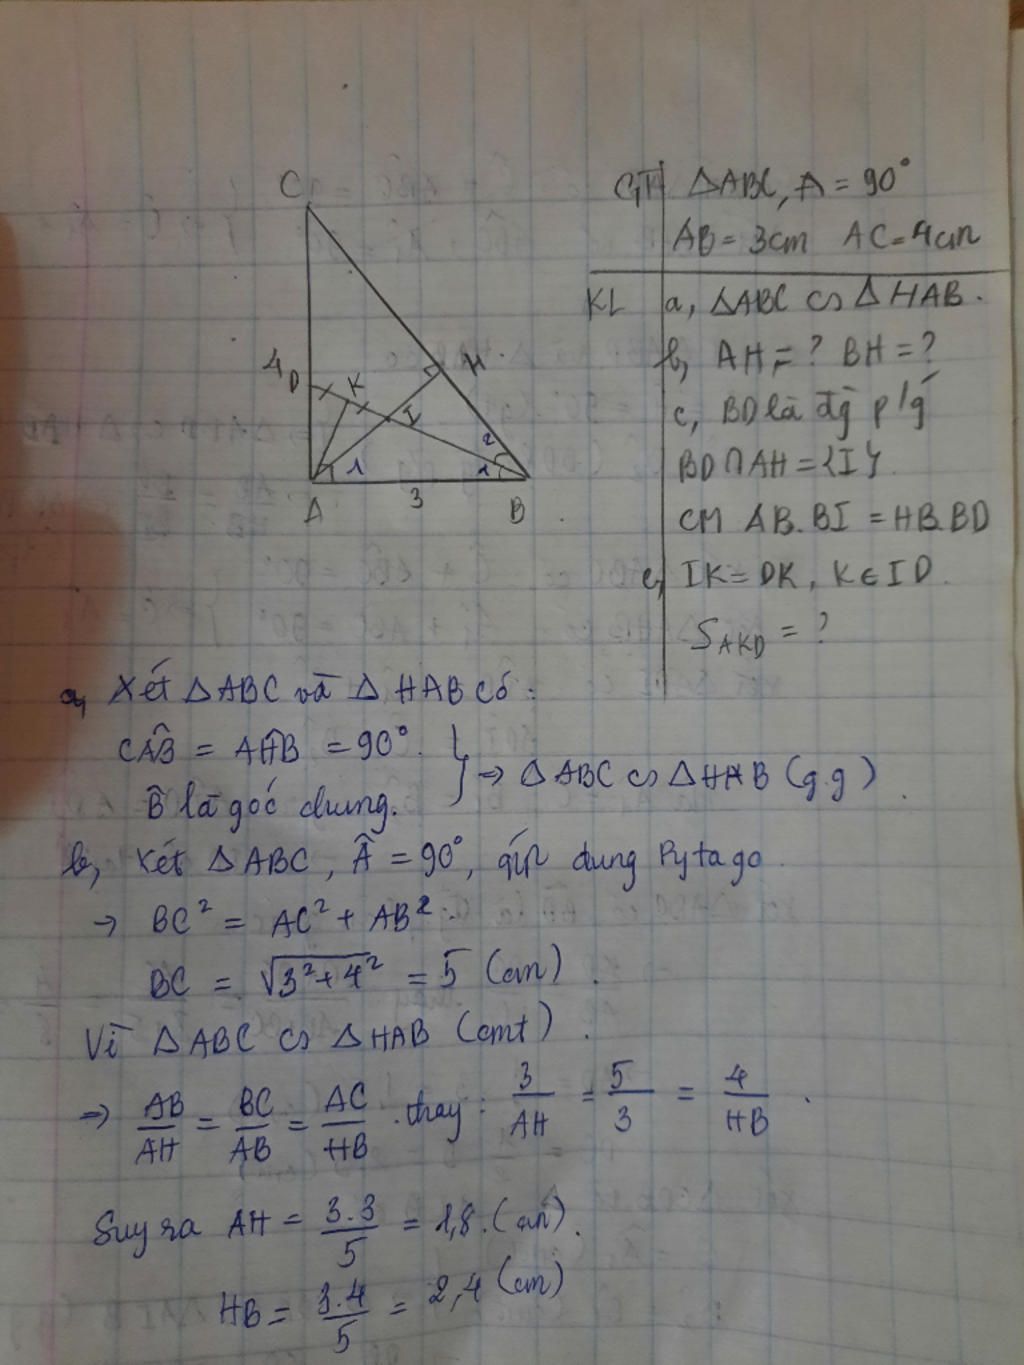 C
4 D K H
I
2
1 1
A 3 B
GT ΔABC, A = 90°
AB = 3cm AC = 4cm
KL a, ΔABC ᔕ ΔHAB.
b, AH = ? BH = ?
c, BD là đg p/g
BD ∩ AH = {I}.
CM AB.BI = HB.BD
e, IK = DK, K ∈ ID.
S_AKD = ?
a, Xét ΔABC và ΔHAB có:
CÂB = AĤB = 90°.
B̂ là góc chung. } → ΔABC ᔕ ΔHAB (g.g)
b, Xét ΔABC, Â = 90°, áp dung Pytago
→ BC² = AC² + AB².
BC = √(3² + 4²) = 5 (cm).
Vì ΔABC ᔕ ΔHAB (cmt).
→ AB/AH = BC/AB = AC/HB . thay: 3/AH = 5/3 = 4/HB.
Suy ra AH = 3.3/5 = 1,8.(cm).
HB = 3.4/5 = 2,4 (cm)